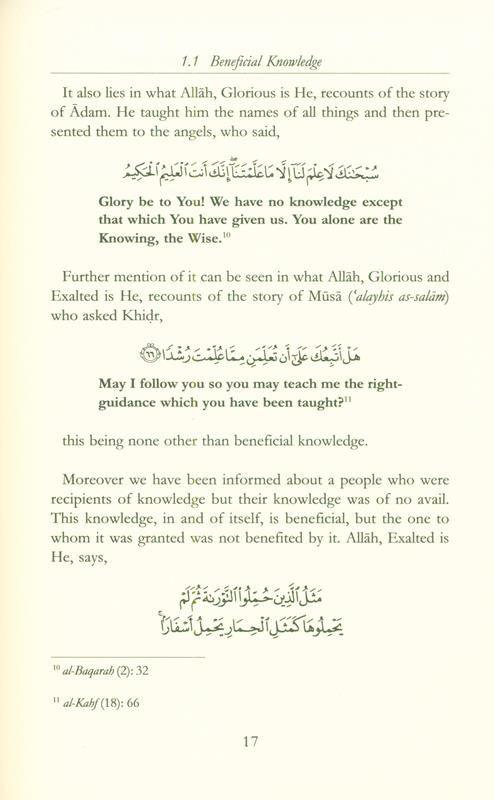 1.1 Beneficial Knowledge
It also lies in what Allāh, Glorious is He, recounts of the story
of Ādam. He taught him the names of all things and then pre-
sented them to the angels, who said,
سُبْحَـٰنَكَ لَا عِلْمَ لَنَآ إِلَّا مَا عَلَّمْتَنَآ ۖ إِنَّكَ أَنتَ ٱلْعَلِيمُ ٱلْحَكِيمُ
Glory be to You! We have no knowledge except
that which You have given us. You alone are the
Knowing, the Wise.¹⁰
Further mention of it can be seen in what Allāh, Glorious and
Exalted is He, recounts of the story of Mūsā (‘alayhis as-salām)
who asked Khiḍr,
هَلْ أَتَّبِعُكَ عَلَىٰٓ أَن تُعَلِّمَنِ مِمَّا عُلِّمْتَ رُشْدًا ﴿٦٦﴾
May I follow you so you may teach me the right-
guidance which you have been taught?¹¹
this being none other than beneficial knowledge.
Moreover we have been informed about a people who were
recipients of knowledge but their knowledge was of no avail.
This knowledge, in and of itself, is beneficial, but the one to
whom it was granted was not benefited by it. Allāh, Exalted is
He, says,
مَثَلُ ٱلَّذِينَ حُمِّلُوا۟ ٱلتَّوْرَىٰةَ ثُمَّ لَمْ
يَحْمِلُوهَا كَمَثَلِ ٱلْحِمَارِ يَحْمِلُ أَسْفَارًۢا ۚ
¹⁰ al-Baqarah (2): 32
¹¹ al-Kahf (18): 66
17